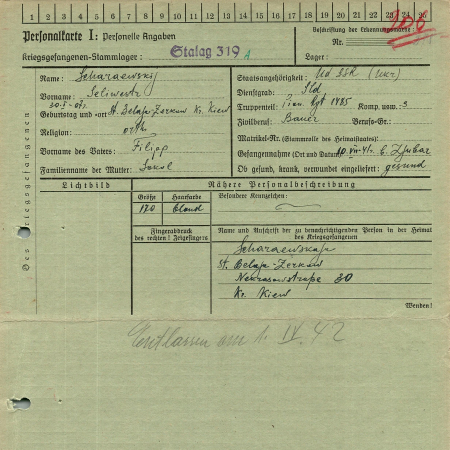 1 2 3 4 5 6 7 8 9 10 11 12 13 14 15 16 17 18 19 20 21 22 23 24 25
Personalkarte I: Personelle Angaben
Kriegsgefangenen-Stammlager: Stalag 319 A
Beschriftung der Erkennungsmarke
Nr.
Lager:
Des Kriegsgefangenen
Name: Scharaewskij
Vorname:
Geburtstag und -ort: St. Belaja-Zerkow Kr. Kiew
Religion: orth.
Vorname des Vaters: Filipp
Familienname der Mutter: Sokol
Staatsangehörigkeit: UdSSR (Ukr)
Dienstgrad: Sld
Truppenteil: Rgt 1485 Komp. usw.: 3
Zivilberuf: Bauer Berufs-Gr.:
Matrikel-Nr. (Stammrolle des Heimatstaates):
Gefangennahme (Ort und Datum):
Ob gesund, krank, verwundet eingeliefert: gesund
Lichtbild
Nähere Personalbeschreibung
Größe Haarfarbe Besondere Kennzeichen:
170 blond
Fingerabdruck
des rechten! Zeigefingers
Name und Anschrift der zu benachrichtigenden Person in der Heimat
des Kriegsgefangenen
Scharaewskaja
St. Belaja-Zerkow
Nekrasowstraße 30
Kr. Kiew
Wenden!
Entlassen am 1. IV. 42